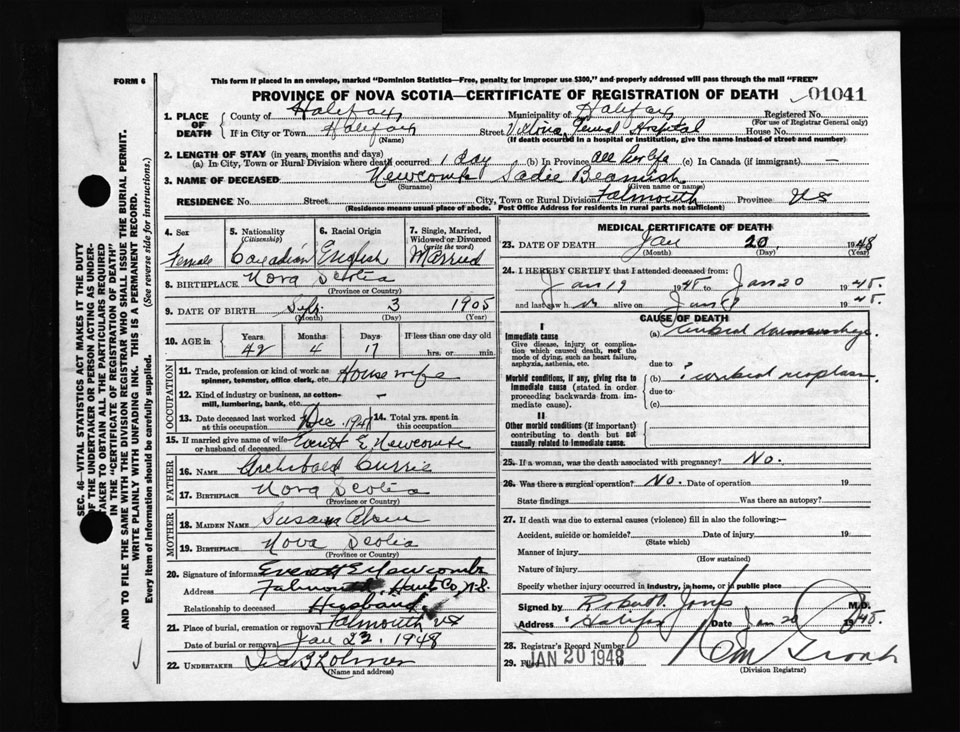 FORM 6
This form if placed in an envelope, marked "Dominion Statistics—Free, penalty for improper use $300," and properly addressed will pass through the mail "FREE"
PROVINCE OF NOVA SCOTIA—CERTIFICATE OF REGISTRATION OF DEATH
01041
1. PLACE OF DEATH
County of Halifax Municipality of Halifax Registered No.
(For use of Registrar General only)
If in City or Town Halifax Street Victoria General Hospital House No.
(Name) (If death occurred in a hospital or institution, give the name instead of street and number)
2. LENGTH OF STAY (in years, months and days)
(a) In City, Town or Rural Division where death occurred 1 day (b) In Province all her life (c) In Canada (if immigrant) —
3. NAME OF DECEASED Newcombe Sadie Beamish
(Surname) (Given name or names)
RESIDENCE No. Street City, Town or Rural Division Falmouth Province NS
(Residence means usual place of abode. Post Office Address for residents in rural parts not sufficient)
4. Sex
Female
5. Nationality (Citizenship)
Canadian
6. Racial Origin
English
7. Single, Married, Widowed or Divorced (write the word)
Married
8. BIRTHPLACE Nova Scotia
(Province or Country)
9. DATE OF BIRTH Sept 3 1905
(Month) (Day) (Year)
10. AGE in
Years Months Days If less than one day old
42 4 17 hrs. or min.
OCCUPATION
11. Trade, profession or kind of work as spinner, teamster, office clerk, etc. Housewife
12. Kind of industry or business, as cotton-mill, lumbering, bank, etc. —
13. Date deceased last worked at this occupation Dec. 194
14. Total yrs. spent in this occupation
15. If married give name of wife or husband of deceased Everett E. Newcombe
FATHER
16. NAME Archibald Currie
17. BIRTHPLACE Nova Scotia
(Province or Country)
MOTHER
18. MAIDEN NAME Susan
19. BIRTHPLACE Nova Scotia
(Province or Country)
20. Signature of informant Everett E Newcombe
Address Falmouth, Co, N.S.
Relationship to deceased Husband
21. Place of burial, cremation or removal Falmouth NS
Date of burial or removal Jan 22, 1948
22. UNDERTAKER
(Name and address)
MEDICAL CERTIFICATE OF DEATH
23. DATE OF DEATH Jan 20, 1948
(Month) (Day) (Year)
24. I HEREBY CERTIFY that I attended deceased from:
Jan 19 1948. to Jan 20 1948.
and last saw h alive on Jan 19 1948.
CAUSE OF DEATH
I
Immediate cause
Give disease, injury or complication which caused death, not the mode of dying, such as heart failure, asphyxia, asthenia, etc.
(a) Cerebral haemorrhage.
due to
Morbid conditions, if any, giving rise to immediate cause (stated in order proceeding backwards from immediate cause).
(b) ? cerebral neoplasm.
due to
(c)
II
Other morbid conditions (if important) contributing to death but not causally related to immediate cause.
25. If a woman, was the death associated with pregnancy? No.
26. Was there a surgical operation? No. Date of operation 19
State findings Was there an autopsy?
27. If death was due to external causes (violence) fill in also the following:—
Accident, suicide or homicide? Date of injury 19
(State which)
Manner of injury
(How sustained)
Nature of injury
Specify whether injury occurred in industry, in home, or in public place
Signed by Robert Jones M.D.
Address Halifax Date Jan 20 1948.
28. Registrar's Record Number
29. Filed JAN 20 1948
(Division Registrar)
SEC. 46—VITAL STATISTICS ACT MAKES IT THE DUTY
OF THE UNDERTAKER OR PERSON ACTING AS UNDER-
TAKER TO OBTAIN ALL THE PARTICULARS REQUIRED
IN THE "CERTIFICATE OF REGISTRATION OF DEATH"
AND TO FILE THE SAME WITH THE DIVISION REGISTRAR WHO SHALL ISSUE THE BURIAL PERMIT.
WRITE PLAINLY WITH UNFADING INK. THIS IS A PERMANENT RECORD.
Every item of information should be carefully supplied. (See reverse side for instructions.)